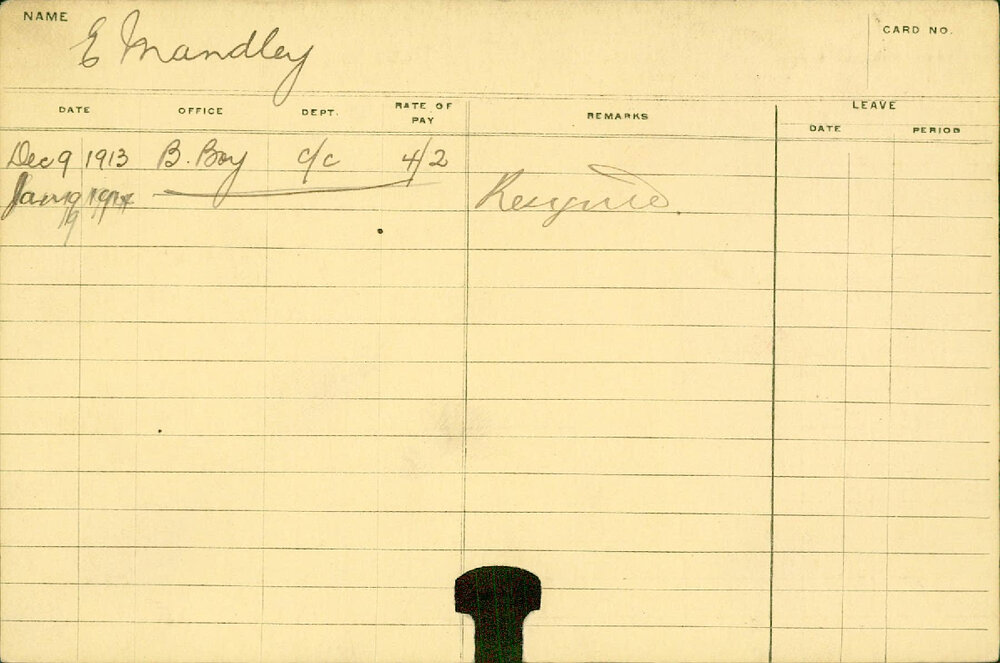 NAME E Mandley CARD NO.
DATE OFFICE DEPT. RATE OF PAY REMARKS LEAVE
DATE PERIOD
Dec 9 1913 B. Boy c/c 4/2
Jan 19 1914 Resigned.
19